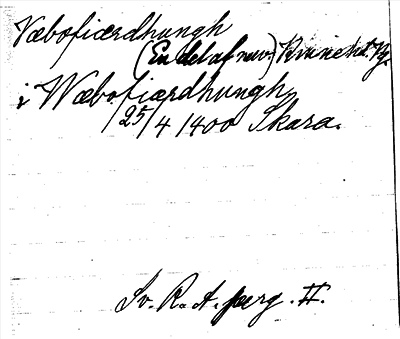 Næbofiærdhungh
(En del af nuv.) Kinne hd. Vg.
i Wæbofiærdhungh
25/4 1400 Skara.
Sv. R. A. perg. II.